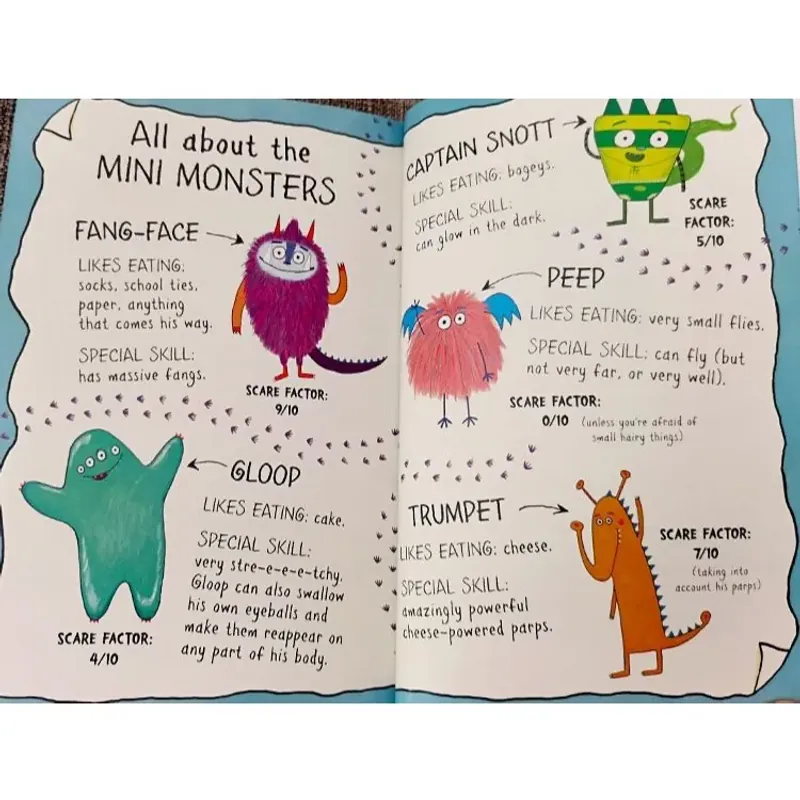 All about the
MINI MONSTERS
FANG-FACE
LIKES EATING:
socks, school ties,
paper, anything
that comes his way.
SPECIAL SKILL:
has massive fangs.
SCARE FACTOR:
9/10
GLOOP
LIKES EATING: cake.
SPECIAL SKILL:
very stre-e-e-e-tchy.
Gloop can also swallow
his own eyeballs and
make them reappear on
any part of his body.
SCARE FACTOR:
4/10
CAPTAIN SNOTT
LIKES EATING: bogeys.
SPECIAL SKILL:
can glow in the dark.
SCARE
FACTOR:
5/10
PEEP
LIKES EATING: very small flies.
SPECIAL SKILL: can fly (but
not very far, or very well).
SCARE FACTOR:
0/10 (unless you're afraid of
small hairy things)
TRUMPET
LIKES EATING: cheese.
SPECIAL SKILL:
amazingly powerful
cheese-powered parps.
SCARE FACTOR:
7/10
(taking into
account his parps)